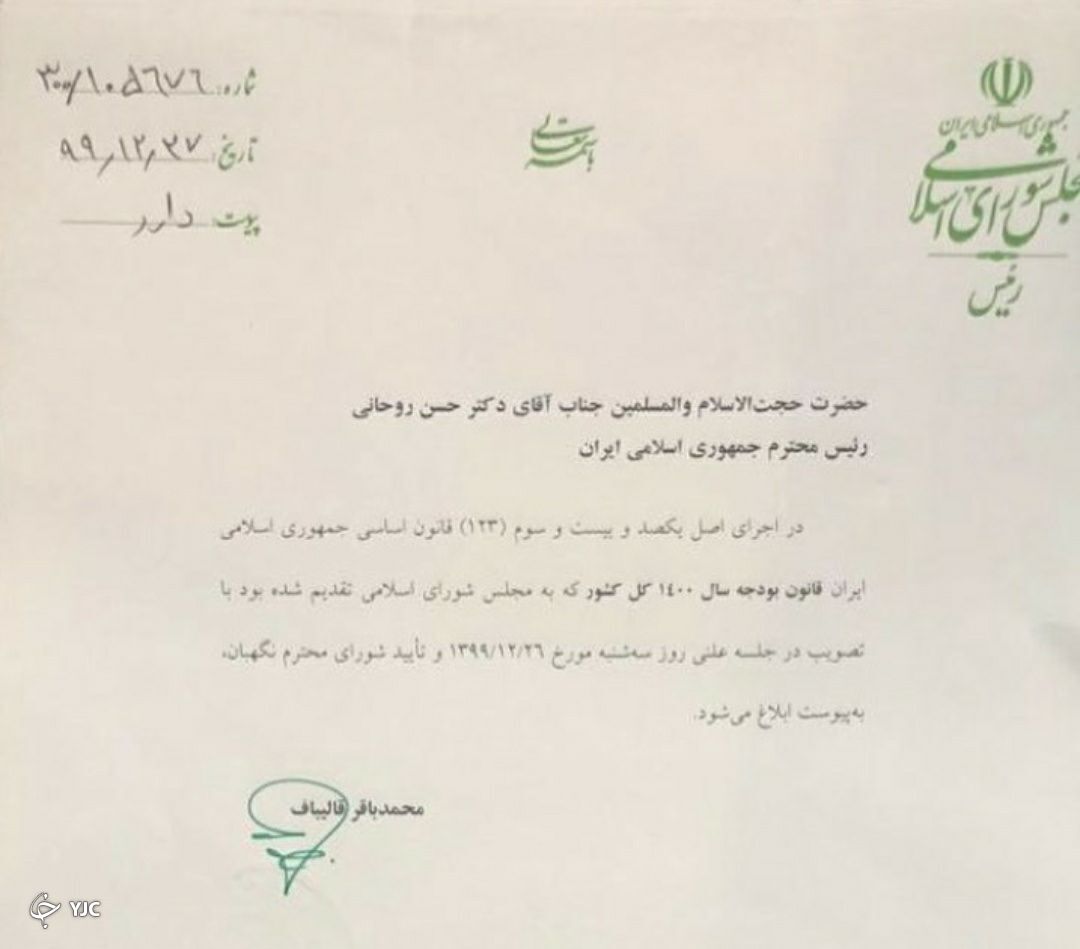 جمهوری اسلامی ایران
مجلس شورای اسلامی
رئیس
باسمه تعالی
شماره: ۳۰۰/۱۰۵۶۷۶
تاریخ: ۹۹/۱۲/۲۷
پیوست: دارد
حضرت حجت‌الاسلام والمسلمین جناب آقای دکتر حسن روحانی
رئیس محترم جمهوری اسلامی ایران
در اجرای اصل یکصد و بیست و سوم (۱۲۳) قانون اساسی جمهوری اسلامی
ایران قانون بودجه سال ۱۴۰۰ کل کشور که به مجلس شورای اسلامی تقدیم شده بود با
تصویب در جلسه علنی روز سه‌شنبه مورخ ۱۳۹۹/۱۲/۲۶ و تأیید شورای محترم نگهبان،
به‌پیوست ابلاغ می‌شود.
محمدباقر قالیباف
YJC